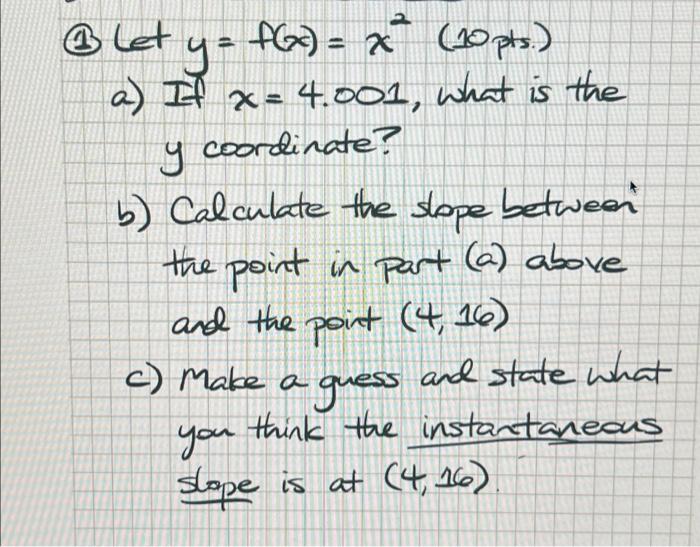 ① Let y = f(x) = x² (10 pts.)
a) If x = 4.001, what is the
y coordinate?
b) Calculate the slope between
the point in part (a) above
and the point (4, 16)
c) Make a guess and state what
you think the instantaneous
slope is at (4, 16).